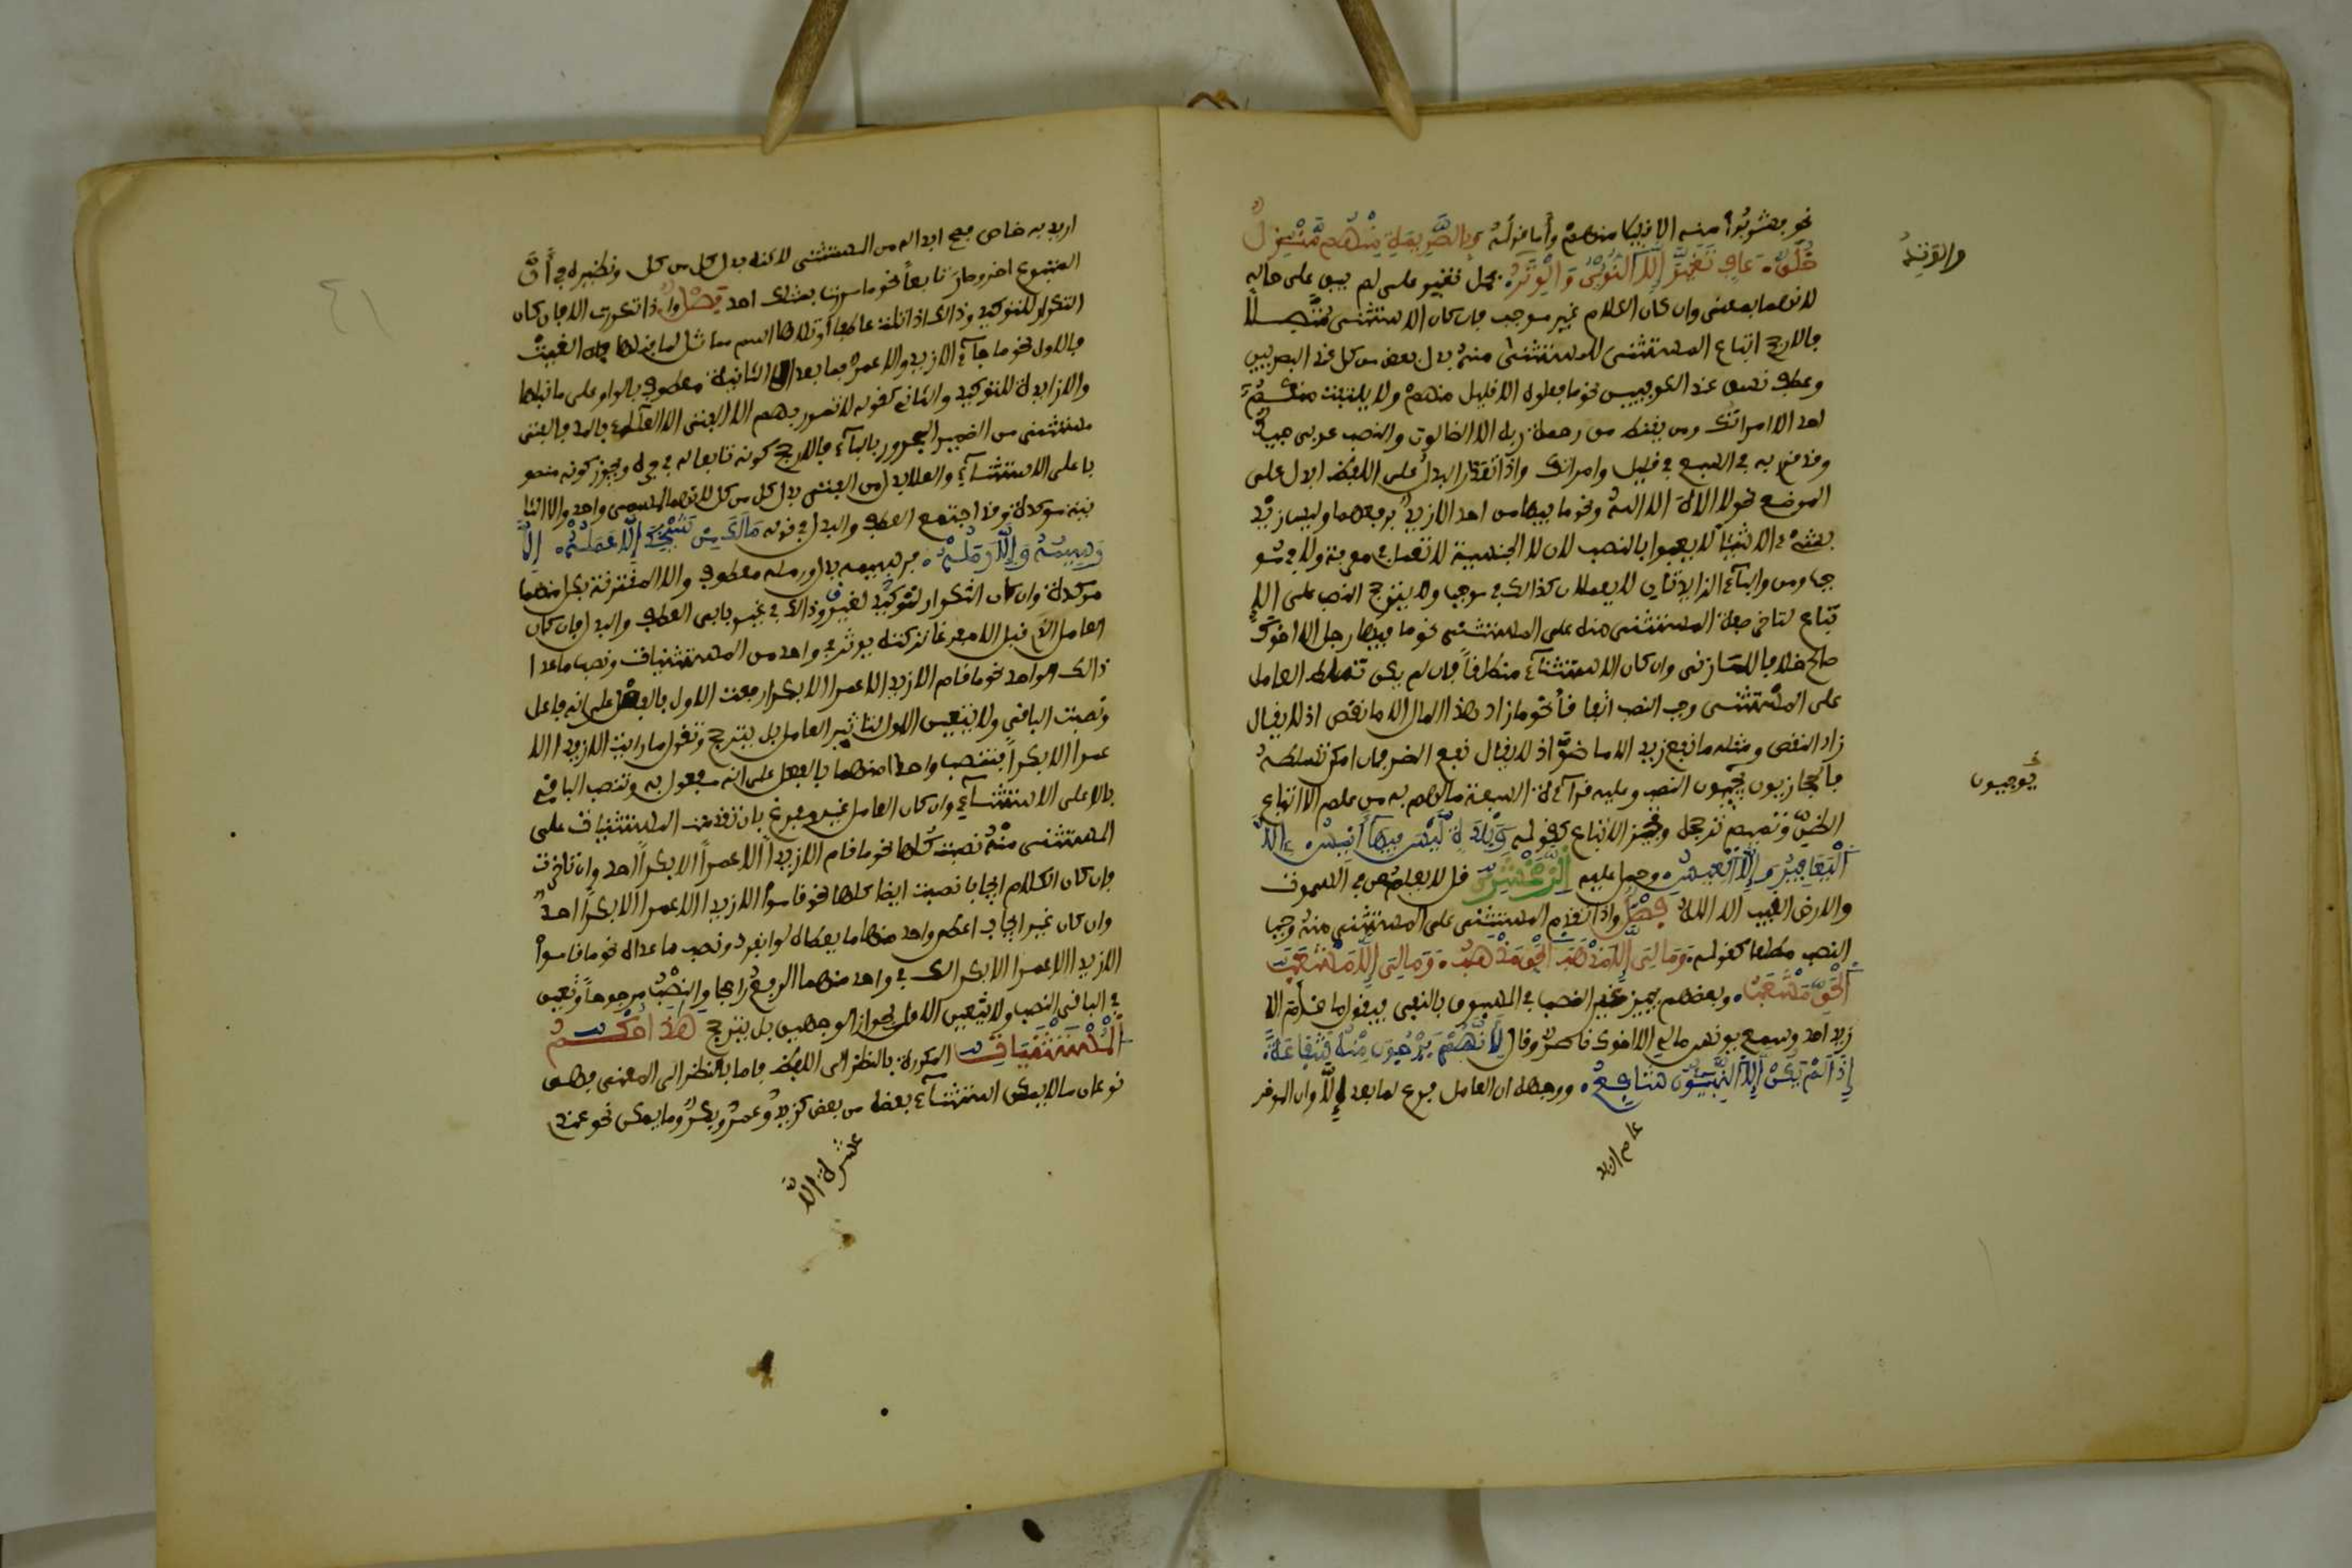 نحو فشربوا منه الا قليلا منهم وأما قوله وبالصريمة منهم منزل
خلق عاف تغير إلا النؤي والوتد فحمل تغير على لم يبق على حاله
والوتد
لانهما بمعنى وان كان الكلام غير موجب فان كان الاستثنى متصلا
فالارجح اتباع المستثنى للمستثنى منه بدل بعض من كل عند البصريين
وعطف نسق عند الكوفيين نحو ما فعلوه الا قليل منهم ولا يلتفت منكم
احد الا امراتك ومن يقنط من رحمة ربه الا الضالون والنصب عربي جيد
وقد قرئ به في السبع في قليل وامراتك واذا تعذر البدل على اللفظ ابدل على
الموضع نحو لا الاه الا الله ونحو ما فيها من احد الا زيد برفعهما وليس زيد
بشيء الا شيئا لا يعبوا بالنصب لان لا الجنسية لا تعمل في معرفة ولا في مو
جب ومن والباء الزايدتان لا يعملان كذالك في موجب ولا يترجح النصب على الا
تباع لتاخر صفة المستثنى منه على المستثنى نحو ما فيها رجل الا اخوك
صالح خلافا للمازني وان كان الاستثناء منقطعا فان لم يمكن تسلط العامل
على المستثنى وجب النصب اتفاقا نحو ما زاد هذا المال الا ما نقص اذ لا يقال
زاد النقص ومثله ما نفع زيد الا ما ضر اذ لا يقال نفع الضر فان امكن تسلطه
فالحجازيون يوجبون النصب وعليه قراءة السبعة ما لهم به من علم الا اتباع
يوجبون
الظن وتميم ترجحه وتجيز الاتباع كقوله وبلدة ليس فيها أنيس إلا
اليعافير وإلا العيس وحمل عليه الزمخشري قل لا يعلم من في السموت
والارض الغيب الا الله فصل واذا تقدم المستثنى على المستثنى منه وجب
النصب مطلقا كقوله وما لي إلا مذهب الحق مذهب وما لي إلا مشعب
الحق مشعب وبعضهم يجيز غير النصب في المسبوق بالنفي فيقول ما قام الا
زيد احد وسمع يونس مالي الا اخوك ناصر وقال لأنهم يرجون منه شفاعة
إذا لم يكن إلا النبيون شافع ووجهه ان العامل فرغ لما بعد إلا وان الموخر
عام اريد
اريد به خاص فصح ابداله من المستثنى لاكنه بدل كل من كل ونظيره في أن
المتبوع اخر وصار تابعا نحو ما مررت بمثلك احد فصل واذا تكررت الا فان كان
التكرار للتوكيد وذالك اذا تلت عاطفا أو تلاها اسم مماثل لما قبلها الغيت
فالاول نحو ما جاء الا زيد والا عمر فما بعد الا الثانية معطوف بالواو على ما قبلها
والا زايدة للتوكيد والثاني كقوله لا تمرر بهم الا الفتى الا العلاء فالفتى
مستثنى من الضمير المجرور بالباء والارجح كونه تابعا له في جره ويجوز كونه منصو
با على الاستثناء والعلا بدل من الفتى بدل كل من كل لانهما لمسمى واحد والا الثا
نية موكدة وقد اجتمع العطف والبدل في قوله مالك من شيخك إلا عمله إلا
رسيمه وإلا رمله فرسيمه بدل ورمله معطوف والا المقترنة بكل منهما
موكدة وان كان التكرار لغير توكيد وذالك في غير بابي العطف والبدل فان كان
العامل الذي قبل الا مفرغا تركته يوثر في واحد من المستثنيات ونصب ما عدا
ذالك الواحد نحو ما قام الا زيد الا عمرا الا بكرا رفعت الاول بالفعل على انه فاعل
ونصبت الباقي ولا يتعين الاول لتاثير العامل بل يترجح وتقول ما رايت الا زيدا الا
عمرا الا بكرا فتنصب واحدا منهما بالفعل على انه مفعول به وتنصب الباقي
بالا على الاستثناء وان كان العامل غير مفرغ فان تقدمت المستثنيات على
المستثنى منه نصبت كلها نحو ما قام الا زيدا الا عمرا الا بكرا احد وان تاخرت
فان كان الكلام ايجابا نصبت ايضا كلها نحو قاموا الا زيدا الا عمرا الا بكرا احد
وان كان غير ايجاب اعطي واحد منها ما يعطاه لو انفرد ونصب ما عداه نحو ما قاموا
الا زيد الا عمرا الا بكرا لك في واحد منهما الرفع راجحا والنصب مرجوحا وتعين
في الباقي النصب ولا يتعين الاول لجواز الوجهين بل يترجح هذا حكم
المستثنيات المكررة بالنظر الى اللفظ واما بالنظر الى المعنى فهي
نوعان ما لا يمكن استثناء بعضه من بعض كزيد وعمر وبكر وما يمكن نحو عندي
عشرة الا